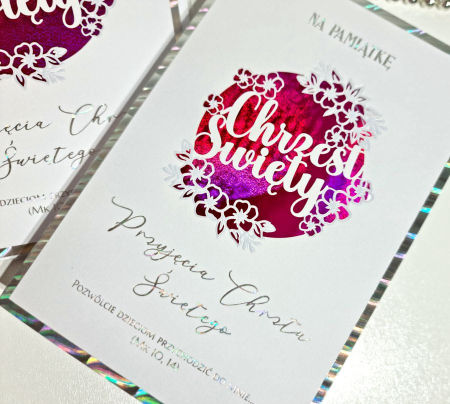 NA PAMIĄTKĘ
Chrzest
Święty
Przyjęcia Chrztu
Świętego
POZWÓLCIE DZIECIOM PRZYCHODZIĆ DO MNIE...
(MK 10, 14)
Święty
Przyjęcia Chrztu
Świętego
DZIECIOM
(MK